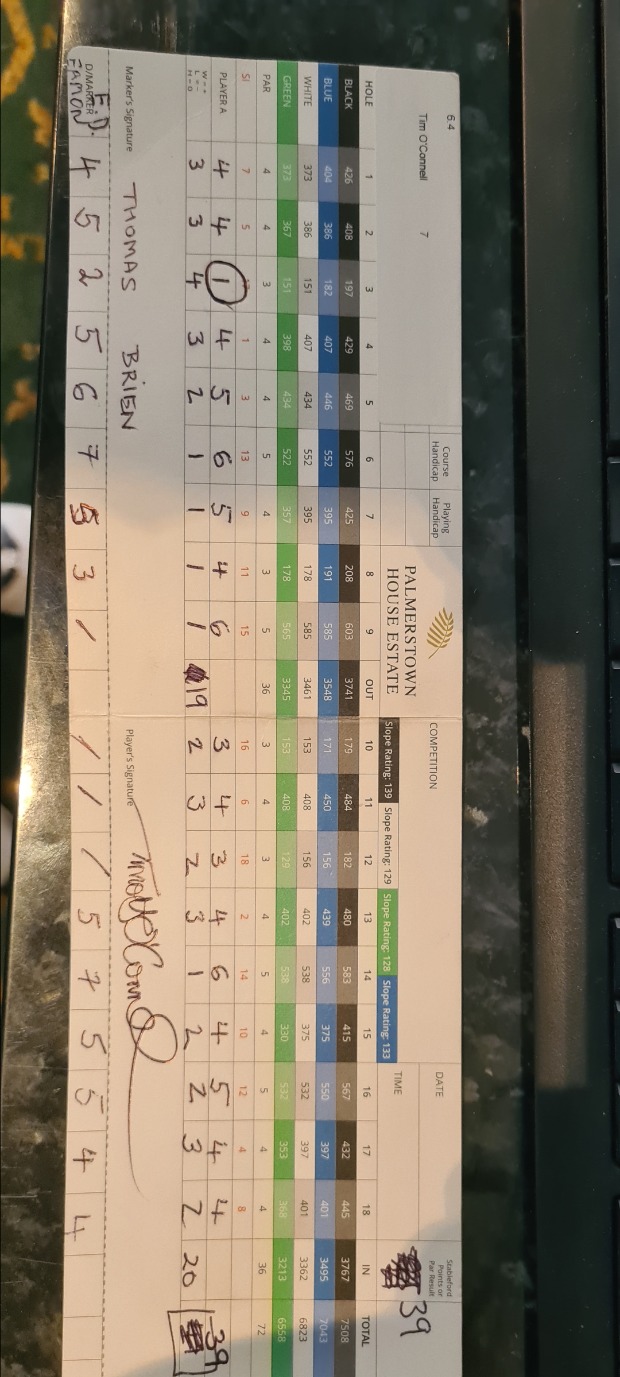 6.4
Tim O'Connell 7
Course Handicap
Playing Handicap
PALMERSTOWN
HOUSE ESTATE
COMPETITION
DATE
TIME
Stableford Points or Par Result
39
Slope Rating: 139 Slope Rating: 129 Slope Rating: 128 Slope Rating: 133
HOLE 1 2 3 4 5 6 7 8 9 OUT 10 11 12 13 14 15 16 17 18 IN TOTAL
BLACK 426 408 197 429 469 576 425 208 603 3741 179 484 182 480 583 415 567 432 445 3767 7508
BLUE 404 386 182 407 446 552 395 191 585 3548 171 450 156 439 556 375 550 397 401 3495 7043
WHITE 373 386 151 407 434 552 395 178 585 3461 153 408 156 402 538 375 532 397 401 3362 6823
GREEN 373 367 151 398 434 522 357 178 565 3345 153 408 129 402 538 330 532 353 368 3213 6558
PAR 4 4 3 4 4 5 4 3 5 36 3 4 3 4 5 4 5 4 4 36 72
SI 7 5 1 3 13 9 11 15 16 6 18 2 14 10 12 4 8
PLAYER A 4 4 1 4 5 6 5 4 6 3 4 3 4 6 4 5 4 4 39
W = + L = - H = 0 3 3 4 3 2 1 1 1 1 19 2 3 2 3 1 2 2 3 2 20
Marker's Signature THOMAS BRIEN Player's Signature
D/MARKER EAMON 4 5 2 5 6 7 5 3 / / / / 5 7 5 5 4 4